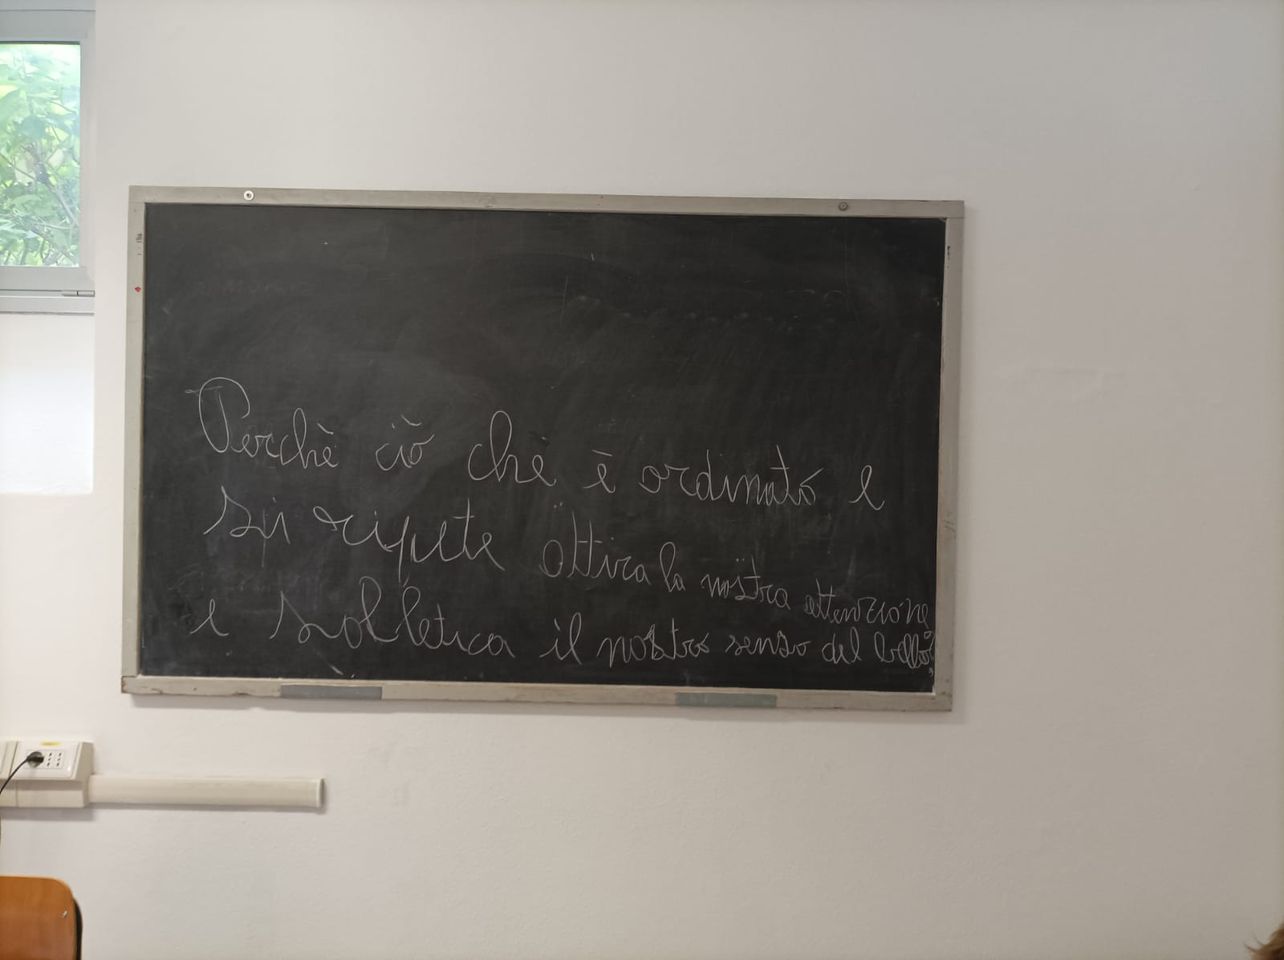 Perchè ciò che è ordinato e
si ripete attira la nostra attenzione
e solletica il nostro senso del bello?